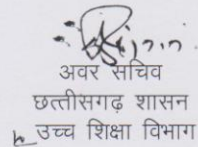 अवर सचिव
छत्तीसगढ़ शासन
उच्च शिक्षा विभाग